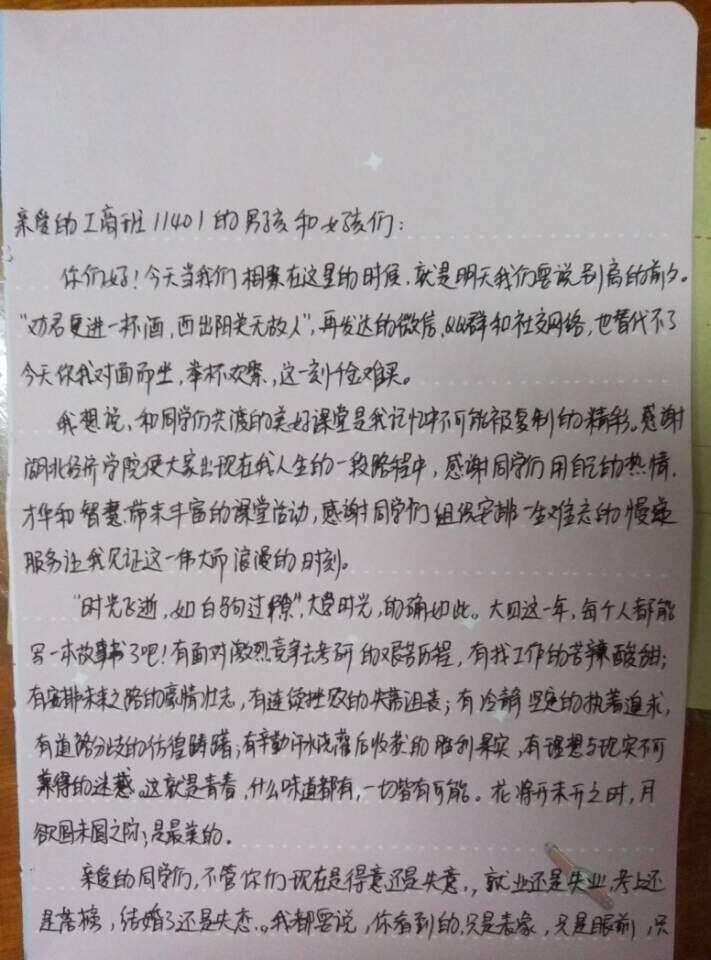 亲爱的工商班11401的男孩和女孩们:
你们好!今天当我们相聚在这里的时候,就是明天我们要说别离的前夕。
"劝君更进一杯酒,西出阳关无故人",再发达的微信、QQ群和社交网络,也替代不了
今天你我对面而坐,举杯欢聚,这一刻千金难买。
我想说,和同学们共渡的美好课堂是我记忆中不可能被复制的精彩。感谢
湖北经济学院使大家出现在我人生的一段路程中,感谢同学们用自己的热情、
才华和智慧带来丰富的课堂活动,感谢同学们组织安排一生难忘的
服务让我见证这一伟大而浪漫的时刻。
"时光飞逝,如白驹过隙",大学时光,的确如此。大四这一年,每个人都能
写一本故事书了吧!有面对激烈竞争去考研的艰苦历程,有找工作的苦辣酸甜;
有安排未来之路的豪情壮志,有连续挫败的失落沮丧;有冷静坚定的执着追求,
有道路分歧的彷徨踌躇;有辛勤汗水浇灌后收获的胜利果实,有理想与现实不可
兼得的迷惑。这就是青春,什么味道都有,一切皆有可能。花将开未开之时,月
欲圆未圆之际;是最美的。
亲爱的同学们,不管你们现在是得意还是失意,,就业还是失业,考上还
是落榜,结婚了还是失恋。我都要说,你看到的,只是表象,只是眼前,只